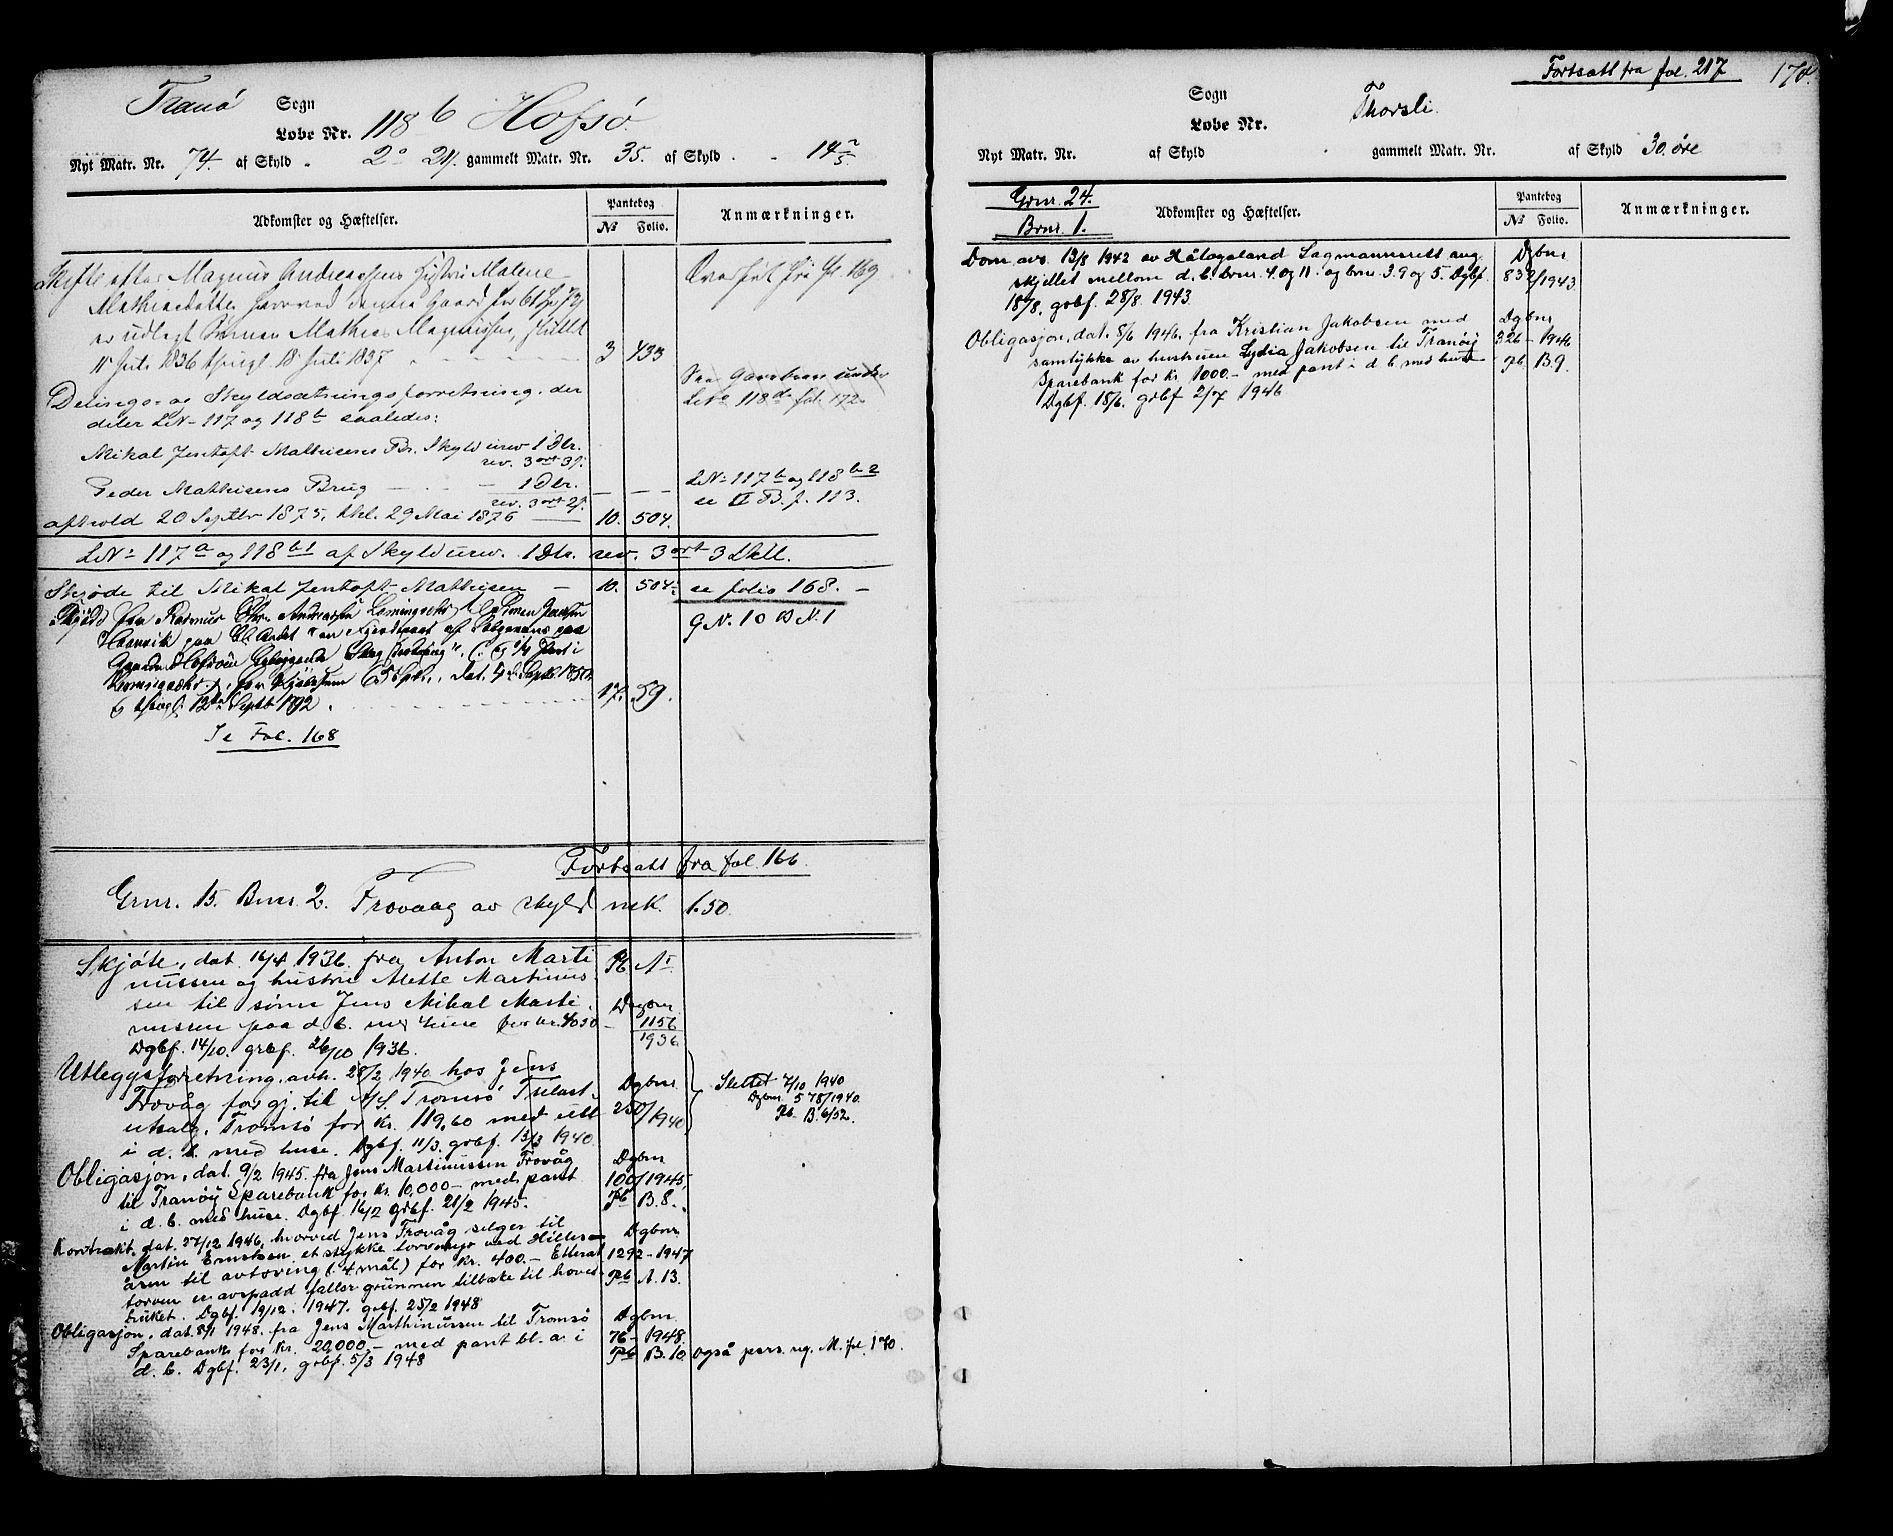 Tranö Sogn
Løbe Nr. 118 b Hofsö.
Nyt Matr. Nr. 74. af Skyld . 2 o 21. gammelt Matr. Nr. 35. af Skyld . . 14
Adkomster og Hæftelser.
Pantebog
No Folio.
Anmærkninger.
Skifte efter Magnus Andreassens Hustru Malene
Mathiasdatter, hvorved denne Gaard for
er udlagt Sönnen Mathias Magnussen, sluttet
11 Juli 1836 thingl. 18 Juli 1837 3 433
Overfört fra fol. 169
Delings- og Skyldsætningsforretning, der
deler LN- 117 og 118 b saaledes:
Mikal Jentoft Mathisens Br. Skyld urev 1 Dlr.
rev. 3 ort 3 s.
Peder Mathisens Brug — 1 Dlr.
rev. 3 ort 2 s.
afholdt 20 Septbr 1875, thl. 29 Mai 1876 10. 504.
LNo 118 d fol. 172
LN- 117 b og 118 b 2
se II B. f. 113.
LN- 117 a og 118 b 1 af Skyld urev. 1 Dlr. rev. 3 ort 3 Skll.
Skjöde til Mikal Jentoft Mathisen — 10. 504. se folio 168. —
G N. 10 B N. 1
Skjöde fra Rasmus Chr. Andreassen
17. 59.
& thingl. 12te Septb 1892.
Se Fol. 168
Fortsatt fra fol. 166.
Grnr. 15. Bnr. 2. Frovaag av skyld mrk. 1.50.
Skjöte, dat. 16/4 1936 fra Anton Marti
nussen og hustru Alette Martinus-
sen til sönn Jens Mikal Marti
nussen paa d. b. med huse for kr. 4050 —
Dgbf. 14/10. grbf. 26/10 1936.
Pb A I
Dagbnr
1156
1936
Utleggsforretning, avh. 28/2 1940 hos Jens
Frovåg for gj. til A/S Tromsö Trelast-
utsalg, Tromsö for Kr. 119,60 med utl
i d. b. med huse. Dgbf. 11/3. grbf. 13/3 1940.
Dgbnr
250/1940
Slettet 7/10 1940
Dgbnr. 578/1940.
Pb. B. 6/52.
Obligasjon, dat. 9/2 1945 fra Jens Martinussen Frovåg
til Tranöy Sparebank for Kr. 10,000 – med pant
i d. b. med huse. Dgbf. 16/2 grbf. 21/2 1945.
Dgbnr
100/1945,
Pb B. 8.
Kontrakt, dat. 27/12 1946, hvorved Jens Frovåg selger til
Martin Ernstsen et stykke torvmyr ved
åren til avtorving (: 4 mål) for kr. 400.– Etterat
torven er avspadd faller grunnen tilbake til hoved-
bruket. Dgbf. 19/12. 1947. grbf. 25/2 1948
Dgbnr
1292 – 1947
Pb A. 13.
Obligasjon, dat. 8/1 1948. fra Jens Marthinussen til Tromsö
Sparebank for Kr. 20,000.– med pant bl. a. i
d. b. Dgbf. 23/1, grbf. 5/3 1948
Dgbnr.
76 – 1948.
Pb B. 10 også pers. reg. M. fol. 170.
Fortsatt fra fol. 217
170.
Sogn
Løbe Nr. Thorsli.
Nyt Matr. Nr. af Skyld gammelt Matr. Nr. af Skyld 30 öre
Grnr. 24.
Brnr. 1.
Adkomster og Hæftelser.
Pantebog
No Folio.
Anmærkninger.
Dom avs. 13/8 1942 av Hålogaland Lagmannsrett ang.
skjellet mellom d. b. brnr. 4 og 11. og brnr. 3. 9 og 5. Dgbf.
18/8. grbf. 28/8. 1943.
Dgbnr
832/1943.
Obligasjon, dat. 8/6 1946. fra Kristian Jakobsen med
samtykke av hustruen Lydia Jakobsen til Tranöy
Sparebank for Kr. 1000.– med pant i d. b. med huse
Dgbf. 18/6. grbf 2/7 1946
Dgbnr
326 – 1946
Pb. B 9.